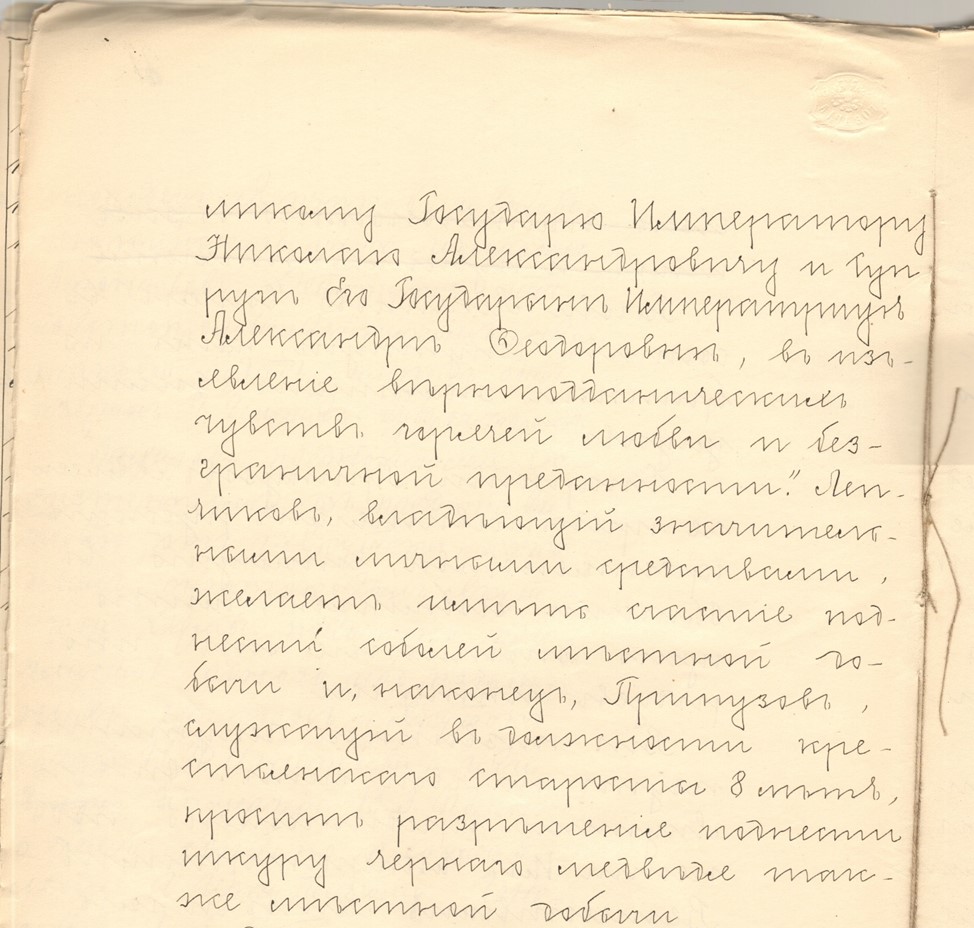 ликому Государю Императору
Николаю Александровичу и Суп
ругѣ Его Государынѣ Императрицѣ
Александрѣ Ѳеодоровнѣ, въ изъ-
явленіе вѣрноподданическихъ
чувствъ горячей любви и без-
граничной преданности." Леп-
чиковъ, владѣющій значитель-
ными личными средствами,
желаетъ имѣть счастіе под-
нести соболей мѣстной до-
бычи и, наконецъ, Притузовъ,
служащій въ должности кре-
стьянскаго старосты 8 лѣтъ,
проситъ разрѣшеніе поднести
шкуру чернаго медвѣдя так-
же мѣстной добычи